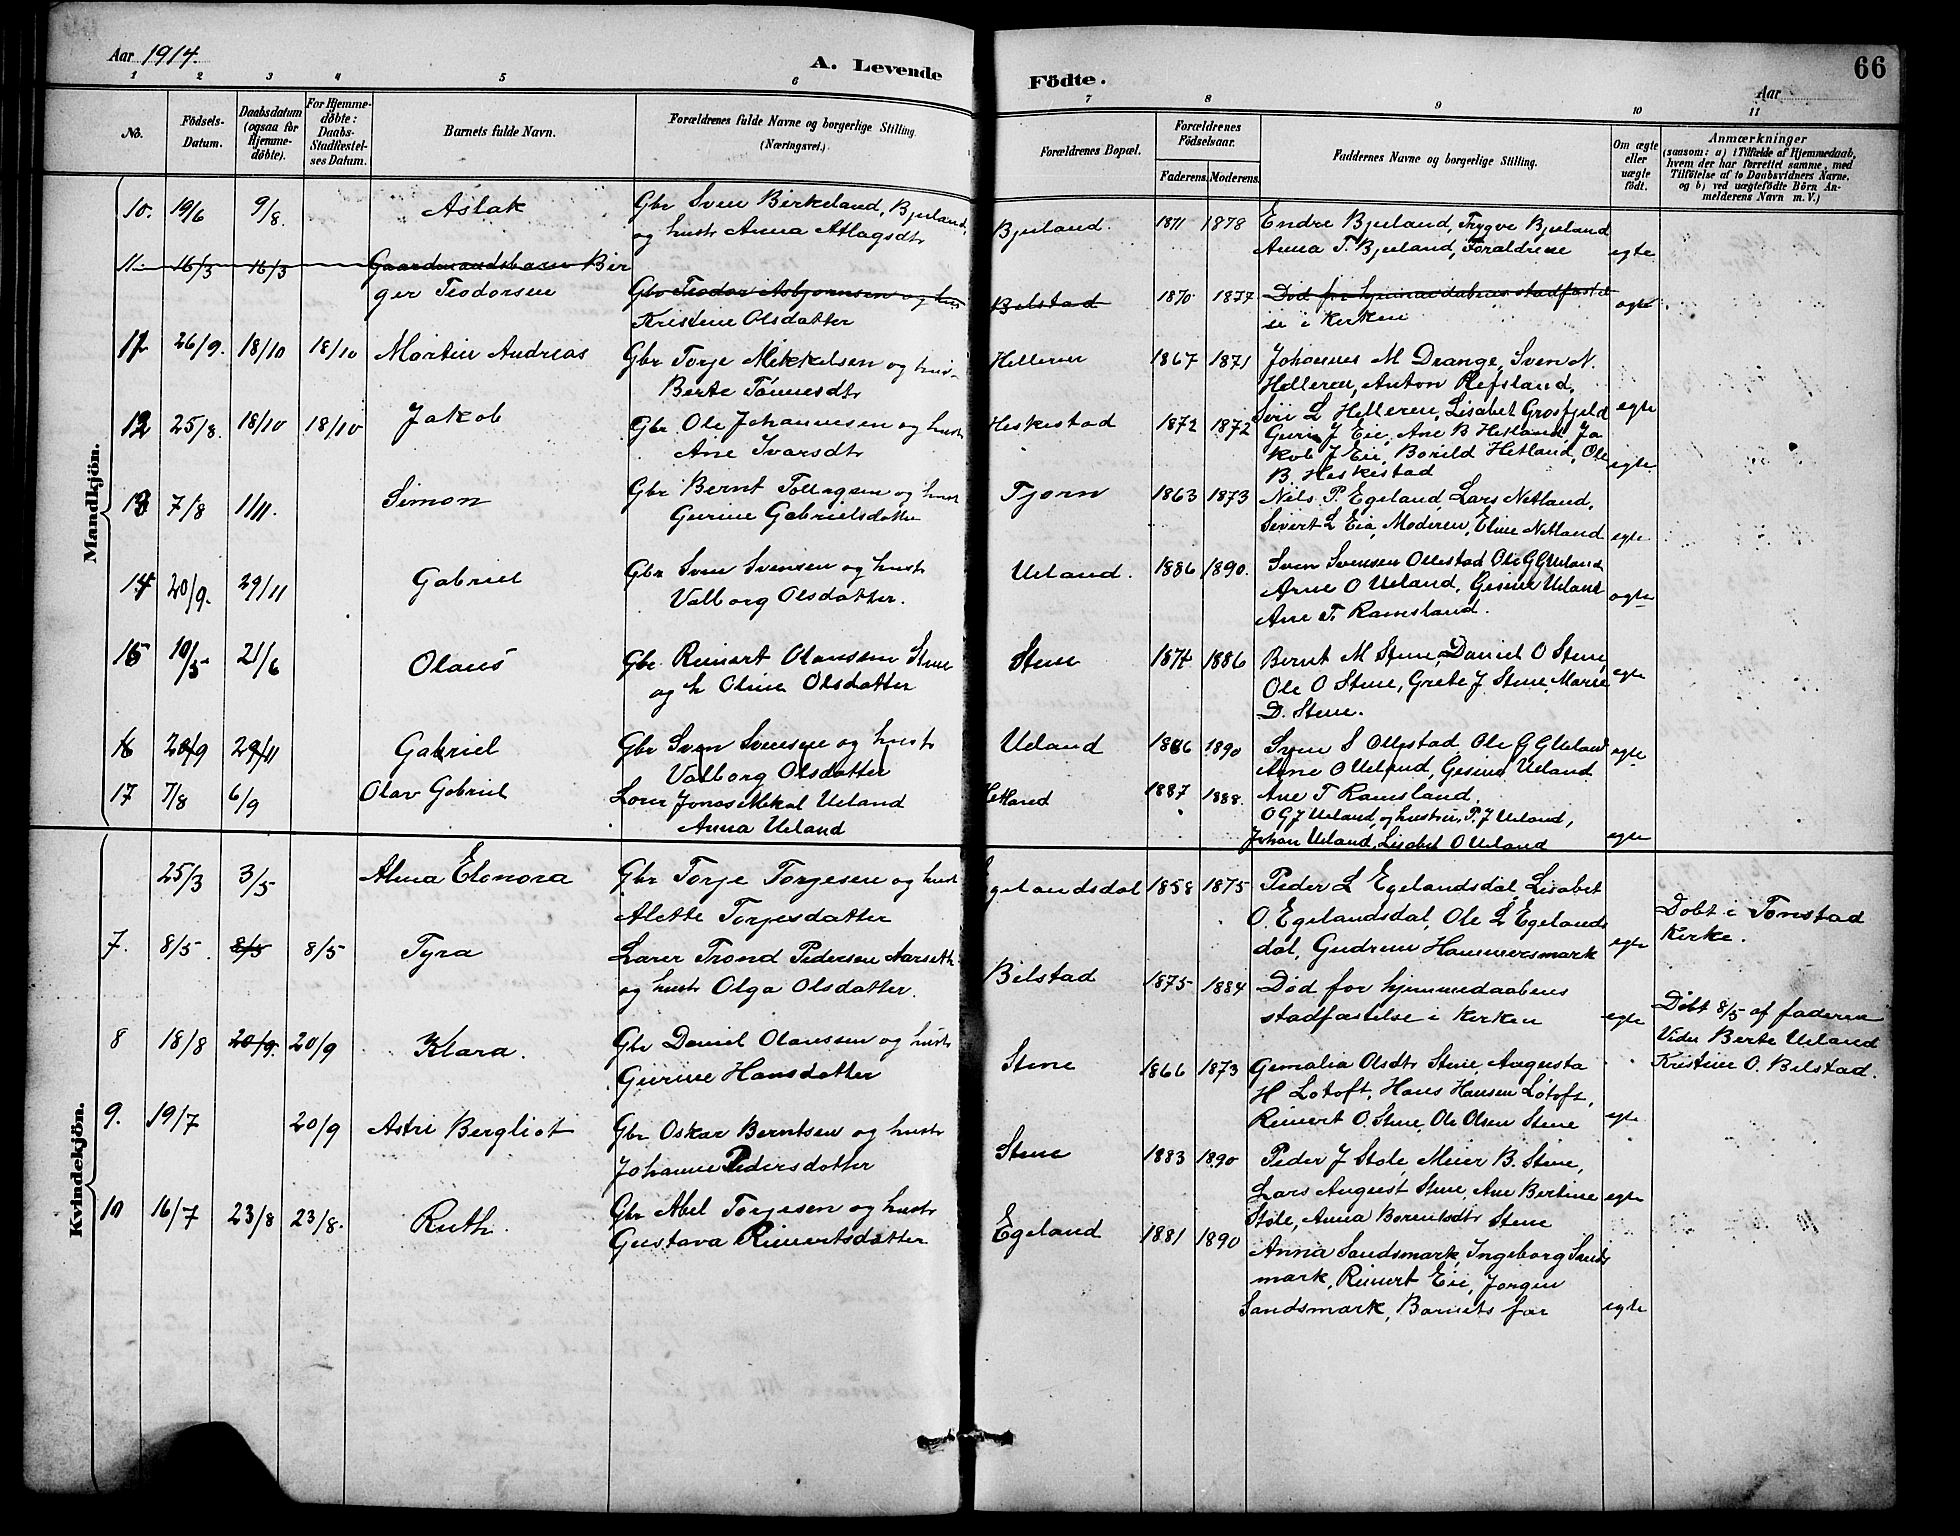 Aar 1914.
A. Levende Födte.
66
Aar
1 2 3 4 5 6 7 8 9 10 11
No.
Födsels-Datum.
Daabsdatum (ogsaa for Hjemme-døbte).
For Hjemme-døbte: Daabs-Stadfæstel-ses Datum.
Barnets fulde Navn.
Forældrenes fulde Navne og borgerlige Stilling. (Næringsvei.)
Forældrenes Bopæl.
Forældrenes Födselsaar.
Faderens. Moderens.
Faddernes Navne og borgerlige Stilling.
Om ægte eller uægte født.
Anmærkninger
(saasom: a) i Tilfælde af Hjemmedaab, hvem der har forrettet samme, med Tilföielse af to Daabsvidners Navne, og b) ved uægtefødte Börn An-melderens Navn m. V.)
Mandkjön.
10. 19/6 9/8 Aslak Gbr Sven Birkeland, Bjuland, Bjuland. 1871 1878 Endre Bjuland, Trygve Bjuland
og hustr Anna Atlagsdtr Anna T. Bjuland, Foraldrene egte
11 16/3 16/3 Gaardmandsbarn Bir
ger Teodorsen Gbr Teodor Asbjornsen og hus Belstad 1870 1877 Død før hjemmedabens stadfæstel
Kristine Olsdatter se i Kirken egte
12 26/9. 18/10 18/10 Martin Andreas Gbr Torje Mikkelsen og hus Helleren 1867 1871 Johannes M Drange, Sven N.
Berte Tønnesdtr Helleren, Anton Refsland,
Siri L Helleren, Lisabet Grosfjeld egte
12 25/8. 18/10 18/10 Jakob Gbr Ole Johannesen og hustr Heskestad 1872 1872 Guri J Eie, Ane B Hetland, Ja
Ane Ivarsdtr kob J Eie, Borild Hetland, Ole
B. Heskestad egte
13 7/8 1/11. Simon Gbr Bernt Tollagsen og hust Tjorn 1863 1873 Nils P. Egeland, Lars Netland,
Gurine Gabrielsdatter Sivert L Eia, Moderen, Eline Netland egte
14 20/9. 29/11 Gabriel Gbr Sven Svensen og hustr Ueland. 1886 1890. Sven Svensen Ollestad Ole G G Ueland
Valborg Olsdatter. Arne O Ueland, Gesine Ueland
Ane T. Ramsland. egte
15 10/5 21/6 Olaus Gbr. Reinert Olaussen Stene Stene 1874 1886 Bernt M Stene, Daniel O Stene
og h Oline Olsdatter Ole O Stene, Grete J Stene, Marie
D. Stene. egte
16 20/9 29/11 Gabriel Gbr Sven Svensen og hustr Ueland 1886 1890 Sven S Ollestad, Ole G G Ueland
Valborg Olsdatter Arne O Ueland, Gesine Ueland egte
17 7/8 6/9 Olav Gabriel Lærer Jonas Mikal Ueland Hetland 1887 1888. Ane T Ramsland.
Anna Ueland O G J Ueland, og hustru, P. J Ueland,
Johan Ueland, Lisabet O Ueland egte
Kvindekjön.
25/3 3/5 Alma Elonora Gbr Torje Torjesen og hust Egelandsdal 1858 1875 Peder L Egelandsdal, Lisabet
Alette Torjesdatter O. Egelandsdal, Ole L Egelands
dal, Gudrun Hammersmark egte
Døbt i Tonstad
Kirke.
7. 8/5 8/5 8/5 Tyra Lærer Trond Pedersen Aarseth Belstad 1875 1884 Død før hjemmedaabens
og hustr Olga Olsdatter. stadfæstelse i Kirken egte
Døbt 8/5 af faderen
Vidn Berte Ueland
Kristine O. Belstad.
8 18/8 20/9. 20/9 Klara. Gbr Daniel Olaussen og hustr Stene 1866 1873 Gemalia Olsdtr Stene, Augusta
Gurine Hansdatter H Løtoft, Hans Hansen Løtoft,
Reinert O. Stene, Ole Olsen Stene egte
9. 19/7 20/9 Astri Bergliot Gbr. Oskar Berntsen og hustr Stene 1883 1890 Peder J Støle, Meier B. Stene,
Johanne Pedersdatter Lars August Stene, Ane Bertine
Støle, Anna Berentsdtr Stene egte
10 16/7 23/8 23/8. Ruth. Gbr Abel Torjesen og hustr Egeland 1881 1890 Anna Sandsmark, Ingeborg Sands
Gustava Reinertsdatter mark, Reinert Eie, Jørgen
Sandsmark, Barnets far egte